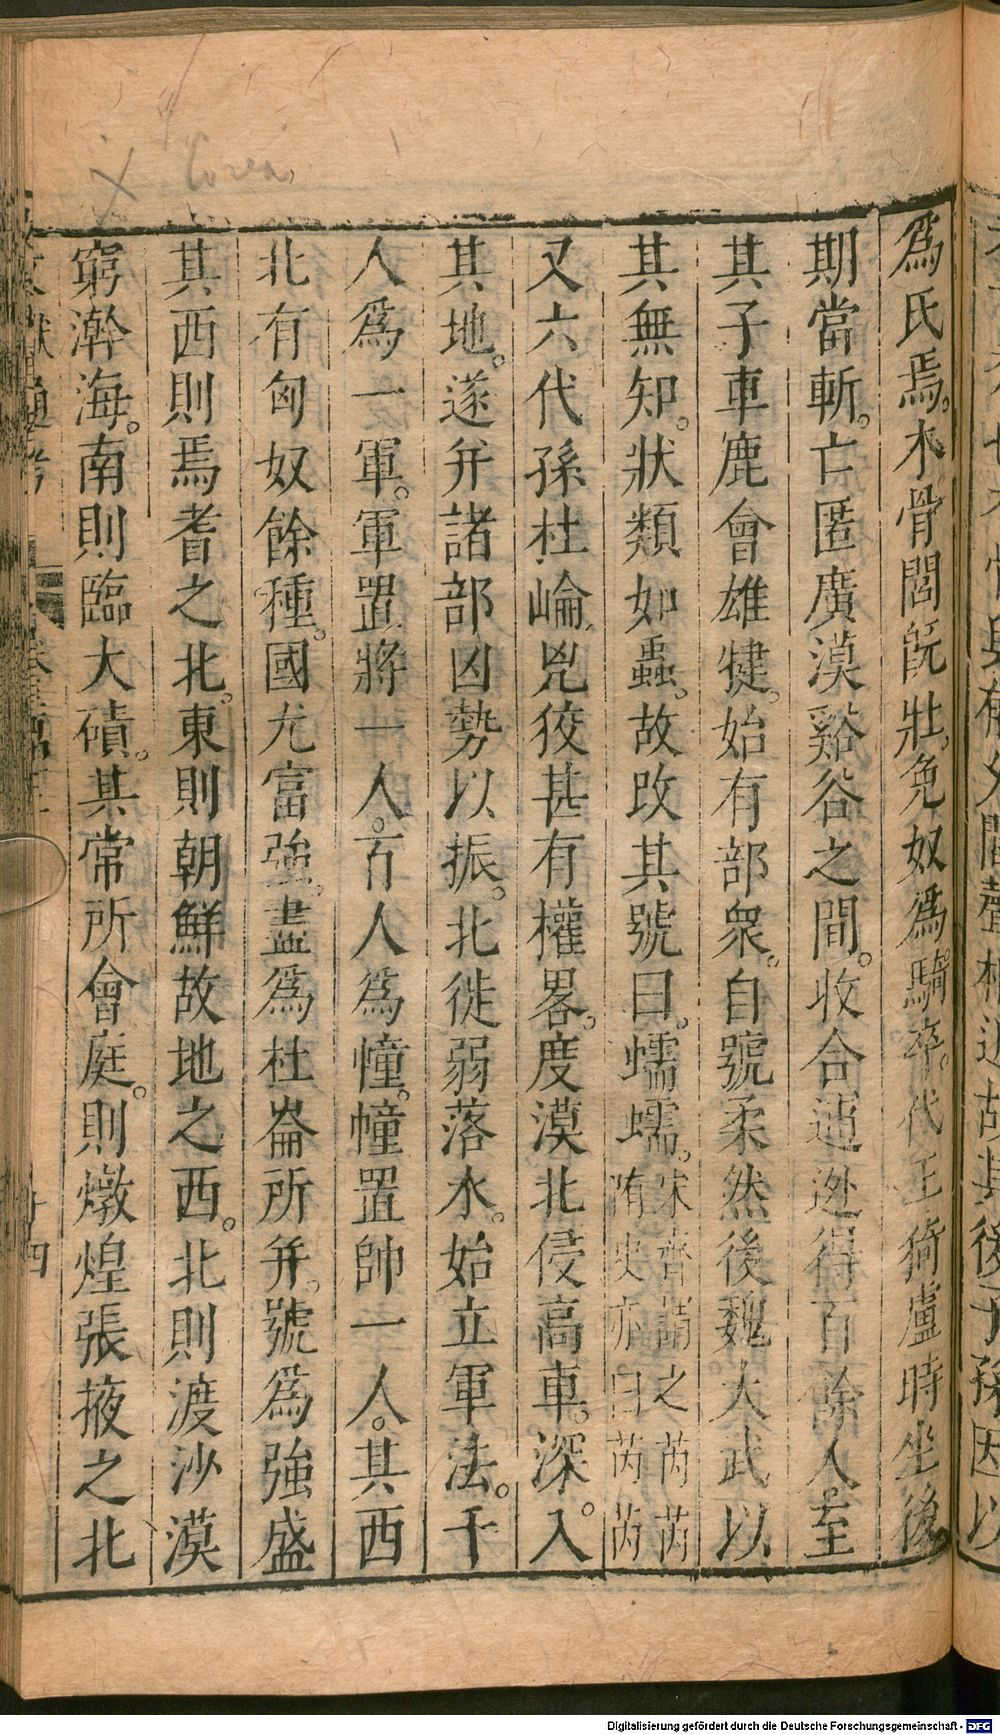 Corea
爲氏焉。木骨閭旣壯。免奴爲騎卒。代王猗盧時坐後
期當斬。亡匿廣漠谿谷之間。收合逋逃得百餘人。至
其子車鹿會雄健。始有部衆。自號柔然後魏太武以
其無知。狀類如蟲。故改其號曰。蠕蠕。宋齊謂之芮芮隋史亦曰芮芮
又六代孫杜崘兇狡甚有權畧。度漠北侵高車。深入
其地。遂幷諸部凶勢以振。北徙弱落水。始立軍法。千
人爲一軍。軍置將一人。百人爲幢。幢置帥一人。其西
北有匈奴餘種。國尤富強。盡爲杜崙所幷。號爲強盛
其西則焉耆之北。東則朝鮮故地之西。北則渡沙漠
窮澣海。南則臨大磧。其常所會庭。則燉煌張掖之北
獻通考
廿四
Digitalisierung gefördert durch die Deutsche Forschungsgemeinschaft - DFG